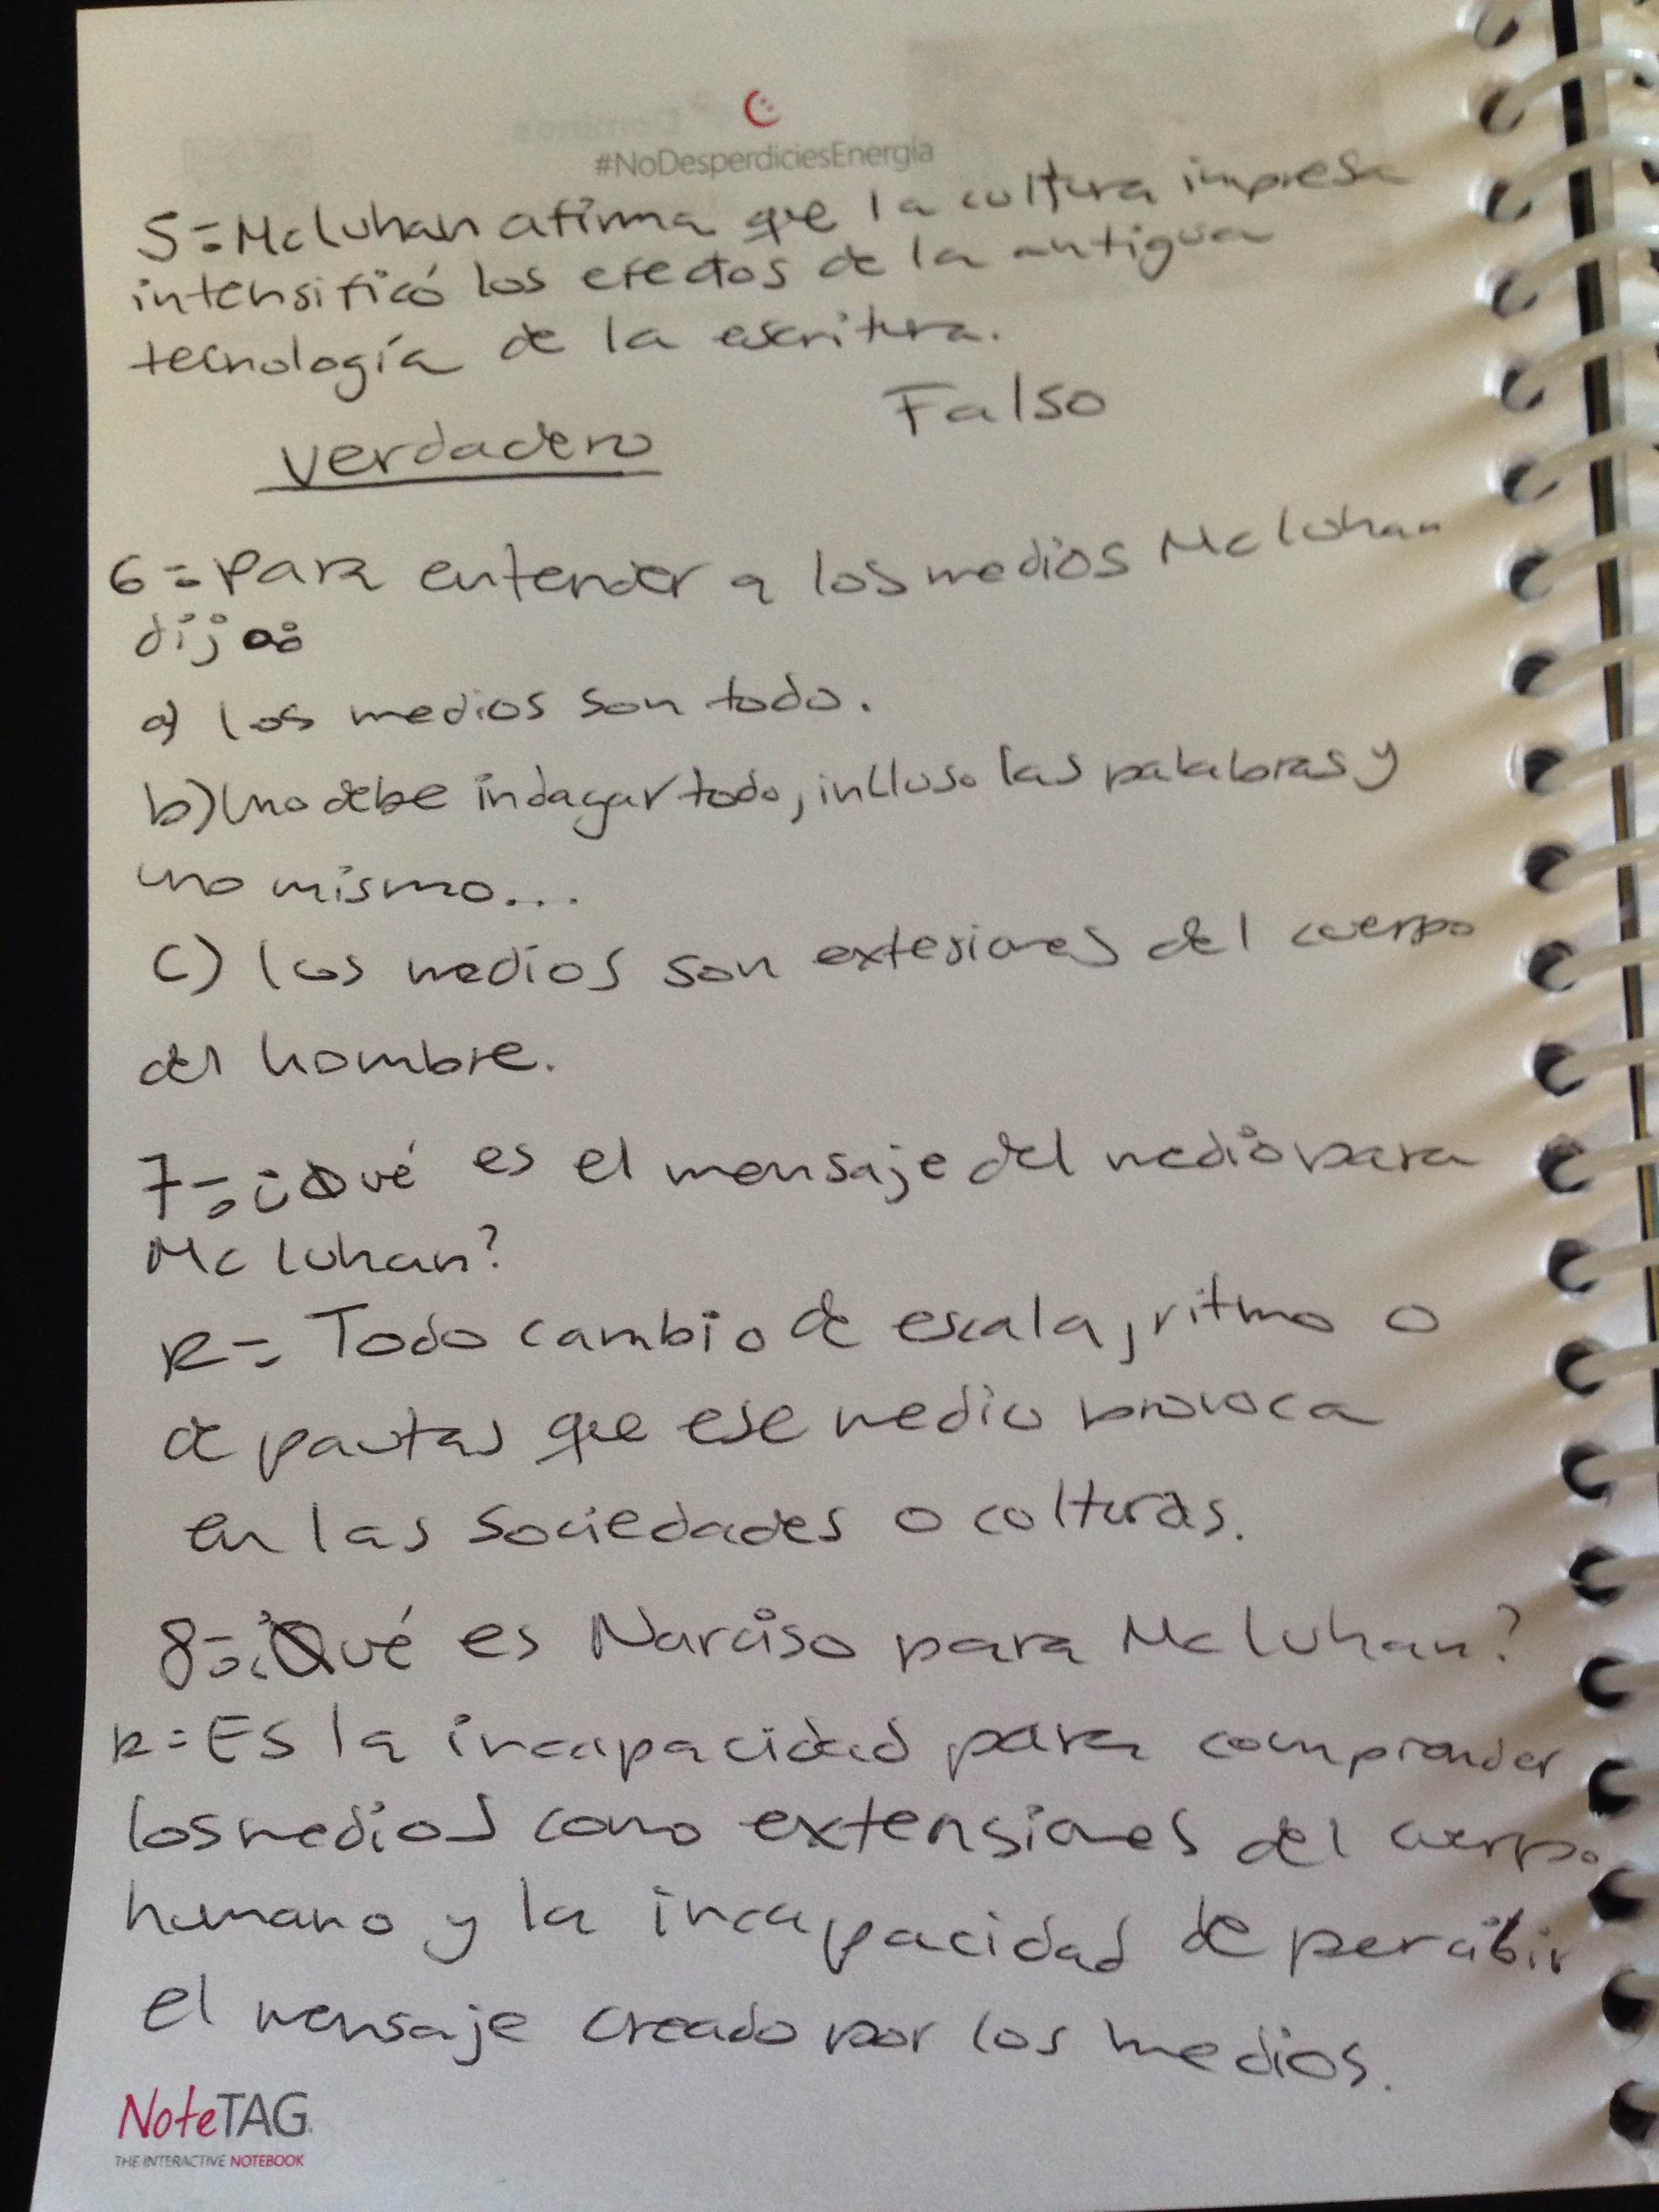 #NoDesperdiciesEnergía
5=McLuhan afirma que la cultura impresa
intensificó los efectos de la antigua
tecnología de la escritura.
Falso
Verdadero
6=Para entender a los medios McLuhan
dijo:
a) los medios son todo.
b) Uno debe indagar todo, incluso las palabras y
uno mismo...
c) los medios son extesiones del cuerpo
del hombre.
7=¿Qué es el mensaje del medio para
McLuhan?
R= Todo cambio de escala, ritmo o
de pautas que ese medio provoca
en las sociedades o culturas.
8=¿Qué es Narciso para McLuhan?
R=Es la incapacidad para comprender
los medios como extensiones del cuerpo
humano y la incapacidad de percibir
el mensaje creado por los medios.
NoteTAG
THE INTERACTIVE NOTEBOOK